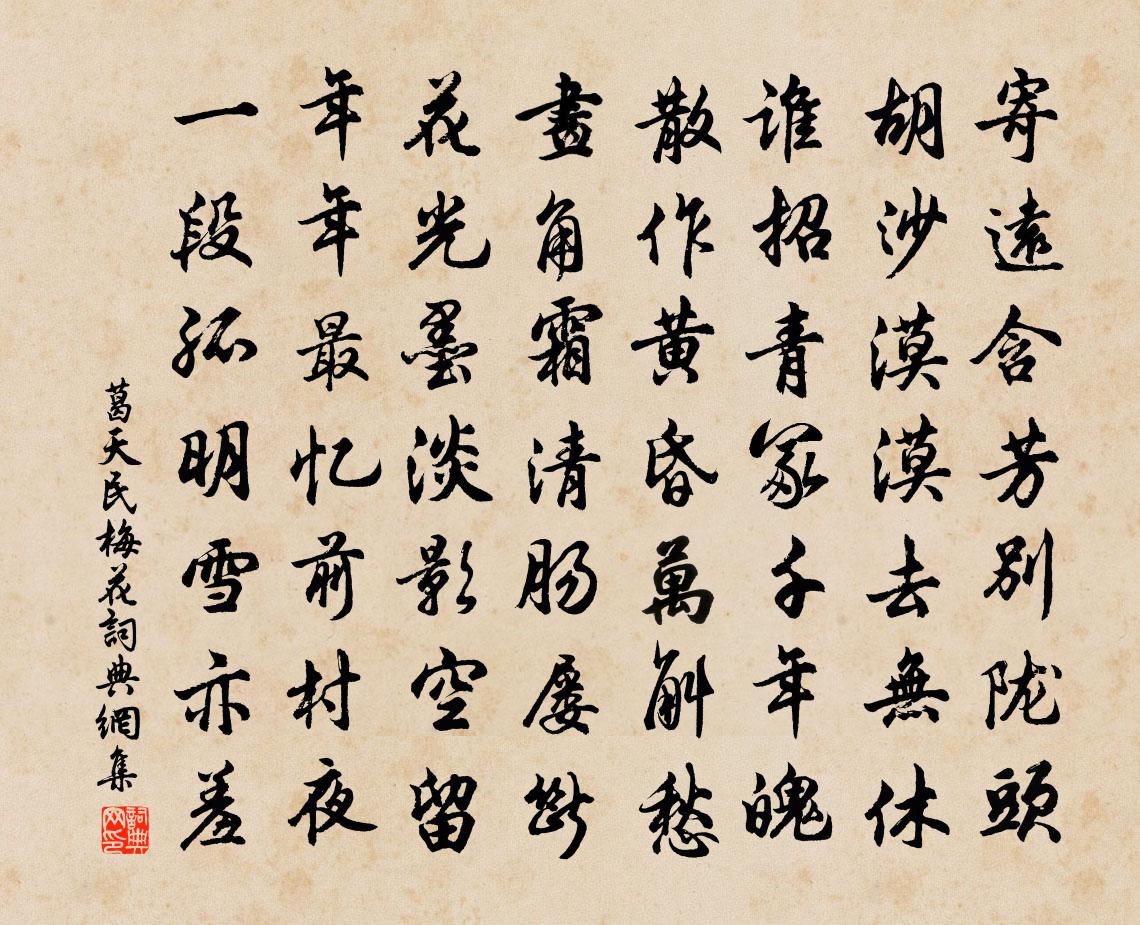 寄遠含芳別陇頭
胡沙漠漠去無休
谁招青冢千年魄
散作黄昏萬斛愁
畫角霜清肠屡斷
花光墨淡影空留
年年最忆前村夜
一段孤明雪亦羞
葛天民梅花詞典網集
詞典网印